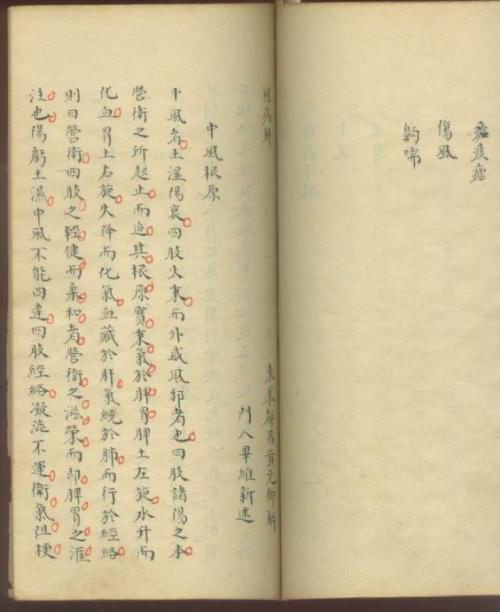 瘟疫瘧
傷風
齁喘
東萊都昌黃元御解
門人畢維新述
中風根原
中風者土濕陽衰四肢失秉而外感風邪者也四肢諸陽之本
營衛之所起止而追其根原實秉氣於脾胃脾土左旋水升而
化血胃土右旋失降而化氣血藏於肝氣統於肺而行於經絡
則曰營衛四肢之輕健而柔和者營衛之滋榮而即脾胃之灌
注也陽虧土濕中風不能四達四肢經絡凝澁不運衛氣阻梗